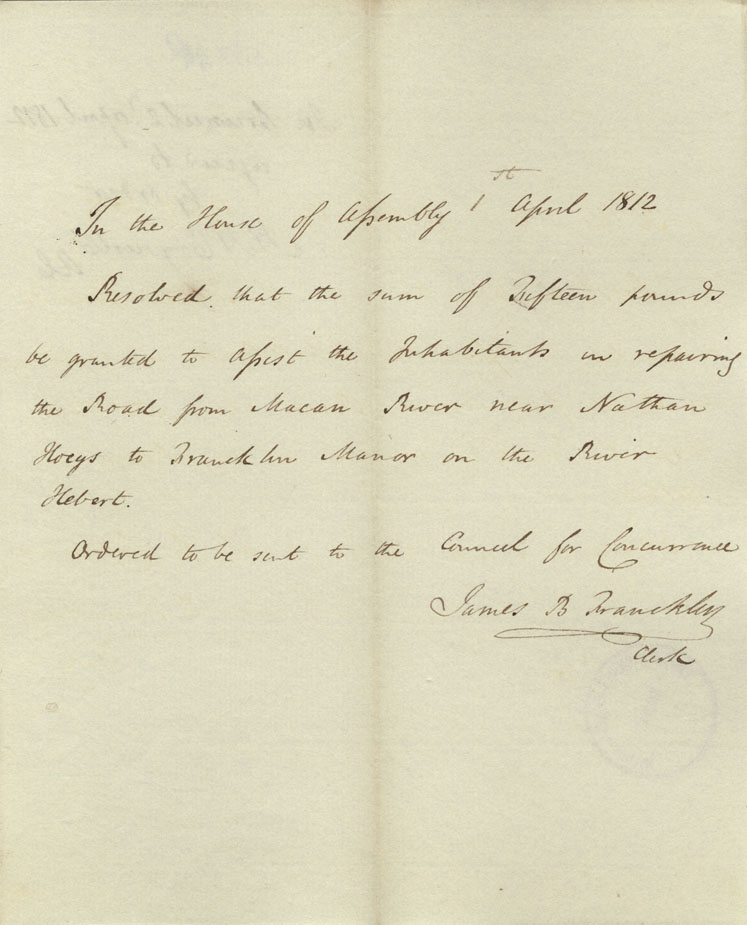 In the House of Assembly 1st April 1812
Resolved that the sum of Fifteen pounds
be granted to assist the Inhabitants in repairing
the Road from Macan River near Nathan
Hoegs to Francklin Manor on the River
Hebert.
Ordered to be sent to the Council for Concurrence
James B Francklin
Clerk